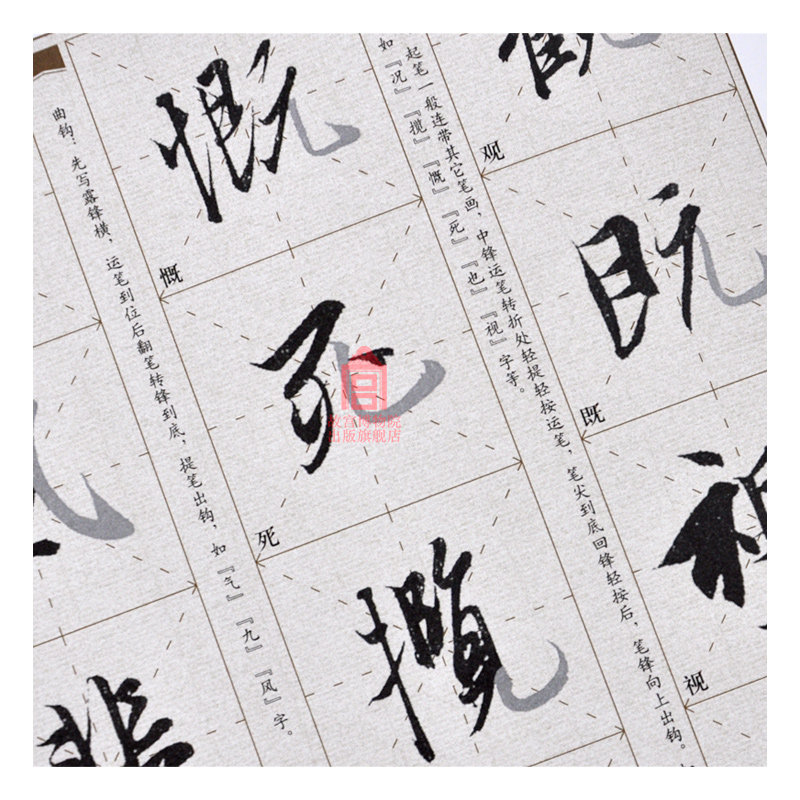 观
既
视
起笔一般连带其它笔画，中锋运笔转折处轻提轻按运笔，笔尖到底回锋轻按后，笔锋向上出钩。
如『况』『揽』『慨』『死』『也』『视』字等。
慨
死
曲钩：先写露锋横，运笔到位后翻笔转锋到底，提笔出钩，如『气』『九』『风』字。
故宫博物院
出版旗舰店